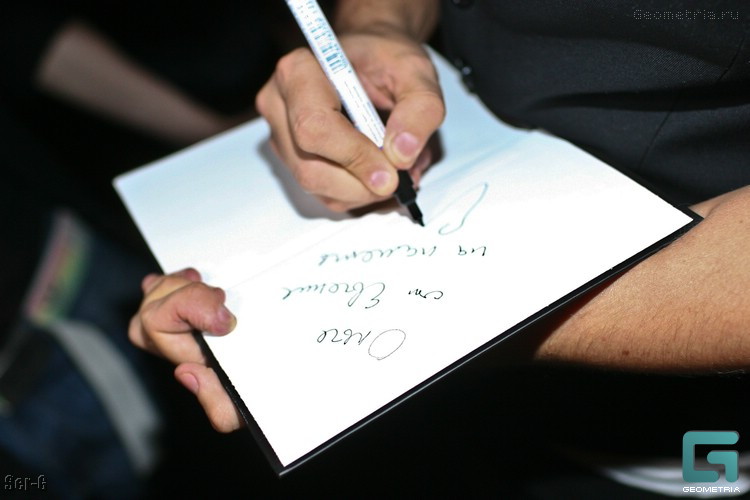 Geometria.ru
Ольге
от Евгения
на память
Ser-G
GEOMETRIA